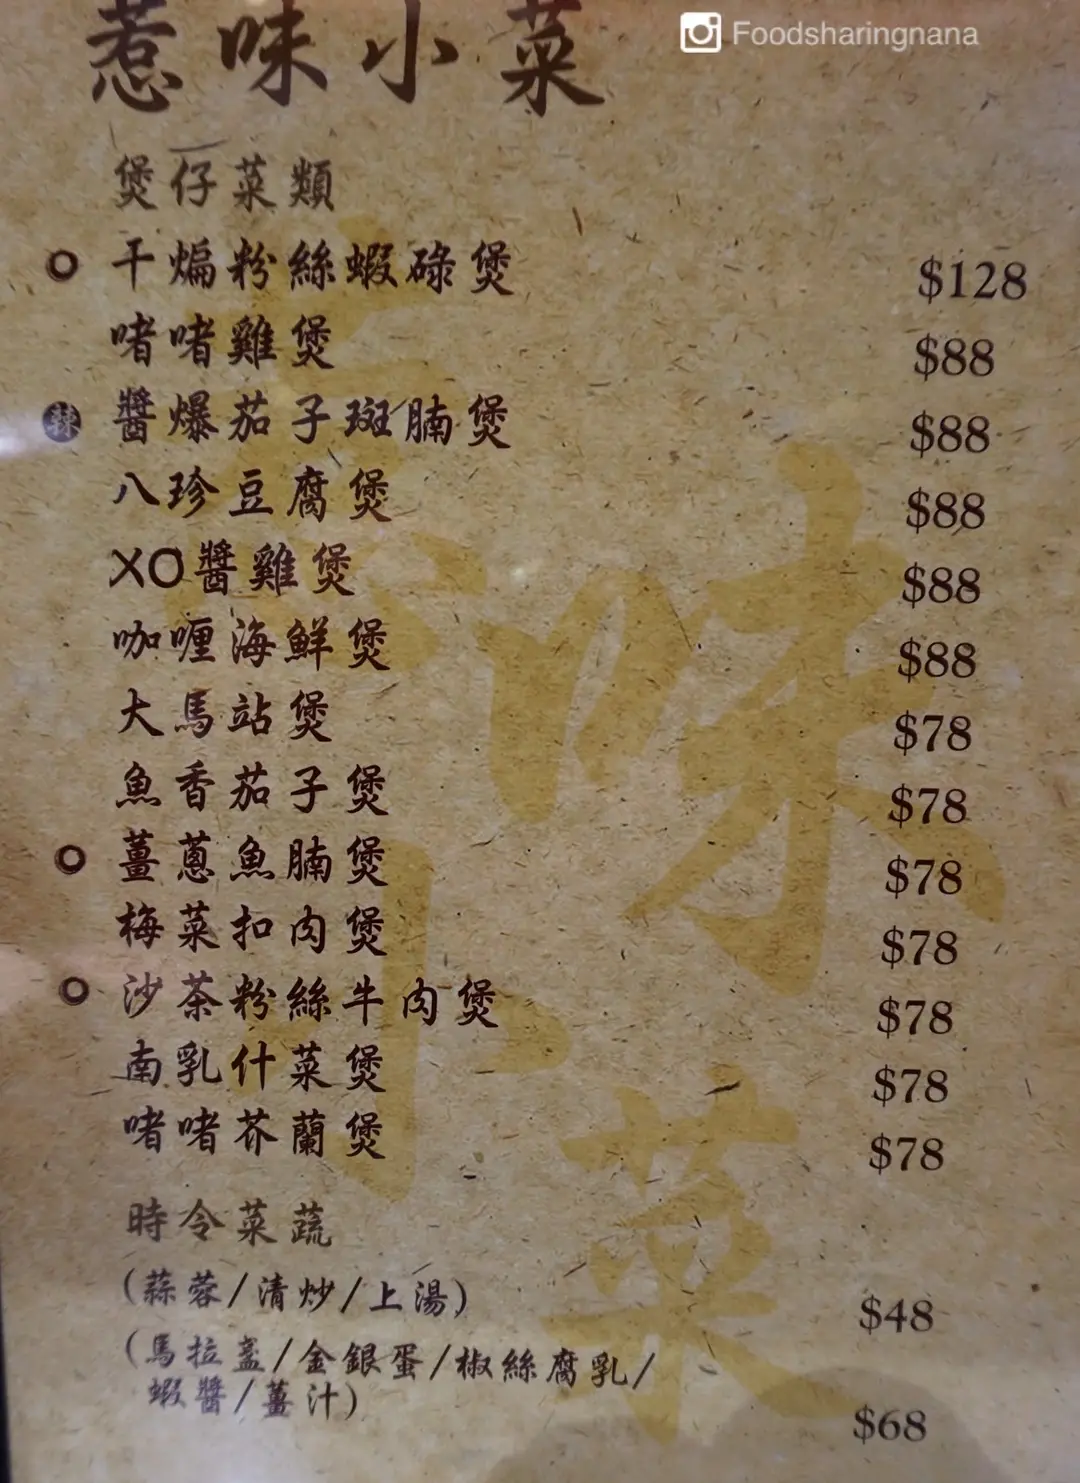 Foodsharingnana
惹味小菜
煲仔菜類
干煸粉絲蝦碌煲 $128
啫啫雞煲 $88
辣 醬爆茄子斑腩煲 $88
八珍豆腐煲 $88
XO醬雞煲 $88
咖喱海鮮煲 $88
大馬站煲 $78
魚香茄子煲 $78
薑蔥魚腩煲 $78
梅菜扣肉煲 $78
沙茶粉絲牛肉煲 $78
南乳什菜煲 $78
啫啫芥蘭煲 $78
時令菜蔬
(蒜蓉/清炒/上湯) $48
(馬拉盞/金銀蛋/椒絲腐乳/
蝦醬/薑汁) $68